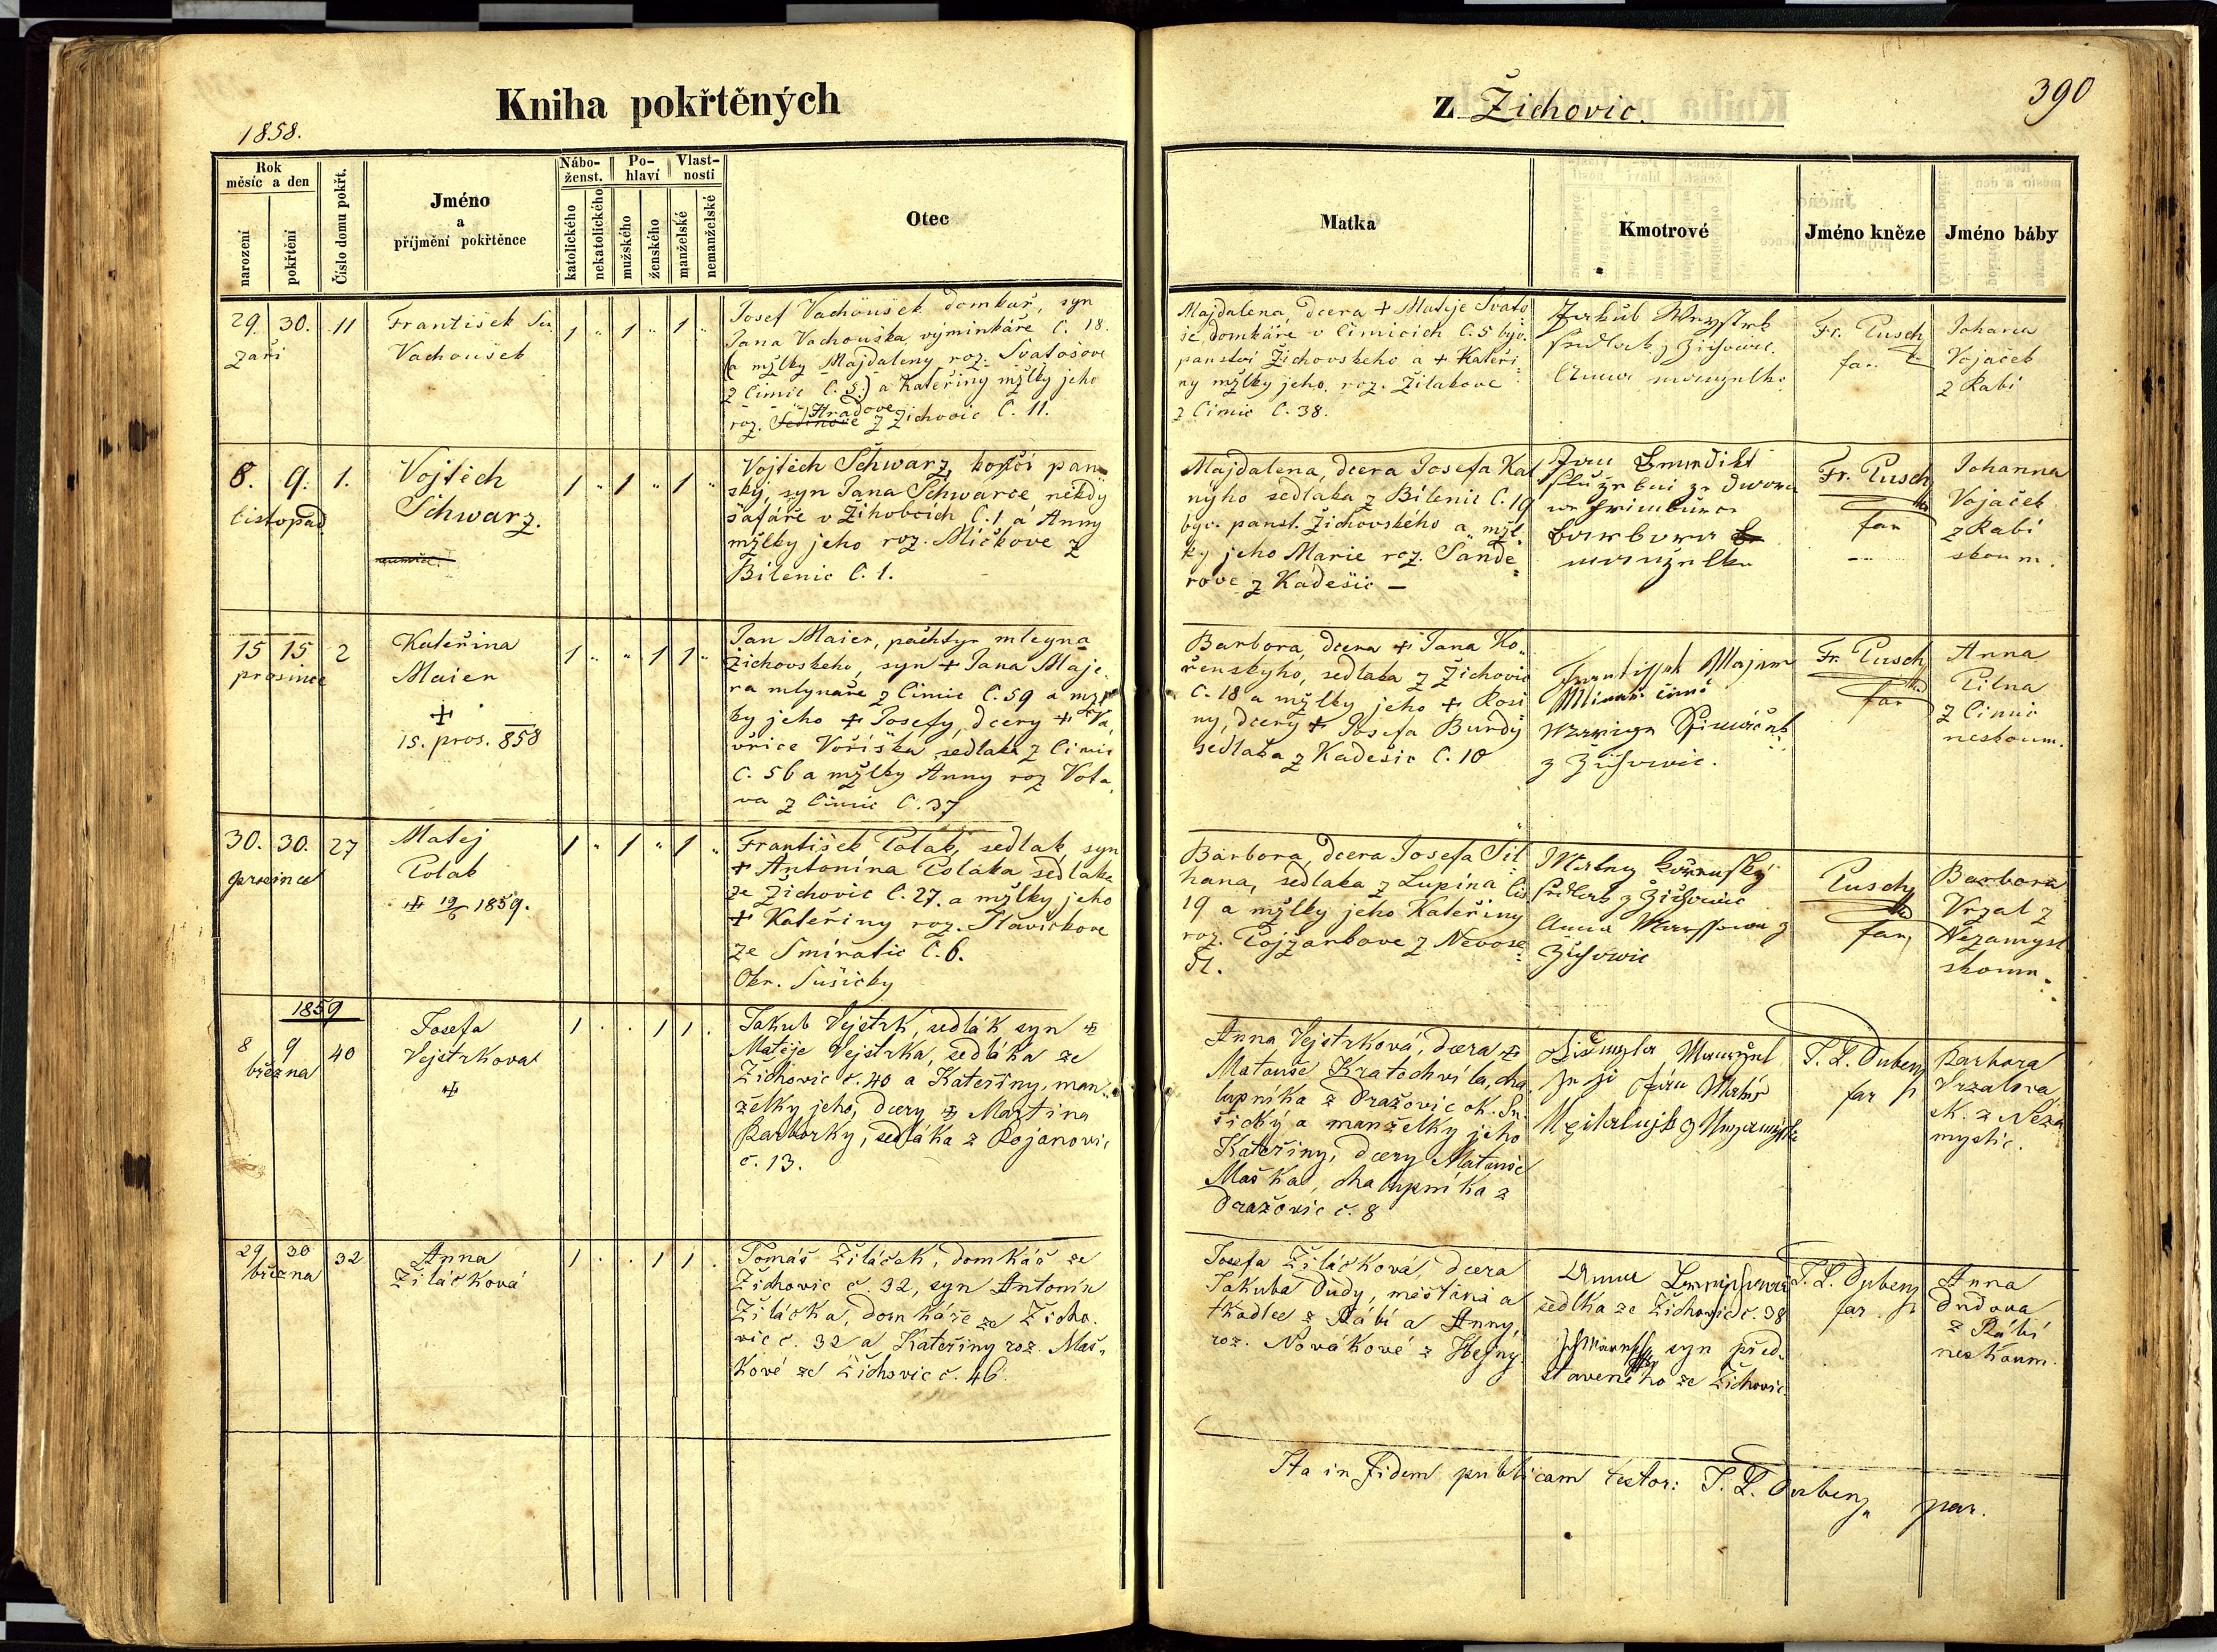 Kniha pokřtěných
z Žichovic.
390
1858.
Rok
měsíc a den
narození
pokřtění
Číslo domu pokřt.
Jméno
a
příjmění pokřtěnce
Nábo-
ženst.
katolického
nekatolického
Po-
hlaví
mužského
ženského
Vlast-
nosti
manželské
nemanželské
Otec
Matka
Kmotrové
Jméno kněze
Jméno báby
29. 30. 11
září
František
Vachoušek
1 " 1 " 1 "
Josef Vachoušek domkař, syn
Jana Vachouška, výminkáře C. 18.
(a mžlky Majdaleny roz. Svatošove
z Cimic C. 5.) a Kateřiny mžlky jeho
roz. Hradove z Zichovic C. 11.
Majdalena, dcera + Matěje Svato
še, domkáře v Cimicích C. 5 býv.
panství Žichovského a + Kateři-
ny mžlky jeho, roz. Žilakove
z Cimic C. 38.
Jakub
z Zichowic.
Anna manzelka
Fr. Pusch
far
Johana
Vojaček
z Rabi
8. 9. 1.
listopad
Vojtěch
Schwarz.
1 " 1 " 1 "
Vojtěch Schwarz, kočči pan-
ský, syn Jana Schwarce někdy
šafáře v Žihobcích C. 1, a Anny
mžlky jeho roz. Mičkove z
Bilenic C. 1.
Majdalena, dcera Josefa Kal
nyho sedlaka z Bilenic C. 19
býv. panst. Žichovského a mžl-
ky jeho Marie roz. Šande-
rove z Kadešic –
Jan
Barbora
manzelka
Fr. Pusch
far
Johanna
Vojaček
z Rabi
skoum.
15 15 2
prosince
Kateřina
Maier
+
15. pros. 858
1 " " 1 1 "
Jan Maier, pachtyr mleyna
Žichovskeho, syn + Jana Maje-
ra mlynaře z Cimic C. 59 a mžl
ky jeho + Josefy, dcery + Va
vřice Voříška sedlaka z Cimic
C. 56 a mžlky Anny roz Vota
va z Cimic C. 37
Barbora, dcera + Jana Ko-
řenskyho, sedlaka z Žichovic
C. 18 a mžlky jeho + Rosi
ny, dcery + Josefa Burdy
sedlaka z Kadešic C. 10
František Majer
z Žichowic.
Fr. Pusch
far
Anna
Pilna
z Cimic
neskoum.
30. 30. 27
prosince
Matej
Polak
+ 19/6 1859.
1 " 1 " 1 "
František Polak, sedlak, syn
+ Antonína Polaka sedlaka
ze Žichovic C. 27. a mžlky jeho
+ Kateřiny roz. Hlavičkove
ze Smiratic C. 6.
Okr. Sušicky
Barbora, dcera Josefa Sil
hana, sedlaka z Lupina Cis
19 a mžlky jeho Kateřiny
roz.
z Nevose-
dl.
Kořenský
z Žichowic
Anna
Žichowic
Pusch
far
Barbora
Vrzal z
Nezamysl
skoum.
1859
8 9 40
března
Josefa
Vejstrkova
+
1 . . 1 1 .
Jakub Vejstrk, sedlák syn +
Matěje Vejstrka, sedláka ze
Žichovic č. 40 a Kateřiny, man-
želky jeho, dcery + Martina
Barborky, sedláka z Bojanovic
č. 13.
Anna Vejstrková, dcera +
Matouše Kratochvíla, cha
lupníka z Dražovic ok. Su-
šický a manželky jeho
Kateřiny, dcery Matouše
Maška, chalupníka z
Dražovic č. 8
J. L. Dubenz
far
Barbora
Vrzalova,
z Neza
myslic.
29 30 32
března
Anna
Žiláčková
1 . . 1 1 .
Tomáš Žiláček, domkář ze
Žichovic č. 32, syn Antonín
Žiláčka, domkáře ze Žicho-
vic č. 32 a Kateřiny roz. Maš-
kové ze Žichovic č. 46.
Josefa Žiláčková, dcera
Jakuba Dudy, měšťana a
tkadlce z Rábí a Anny,
roz. Novákové z Hejny.
Anna
sedlka ze Žichovic č. 38
syn před-
staveného ze Žichovic
J. L. Dubenz
far
Anna
Dudova
z Rábí
neskoum.
Ita in fidem publicam testor: J. L. Dubenz par.